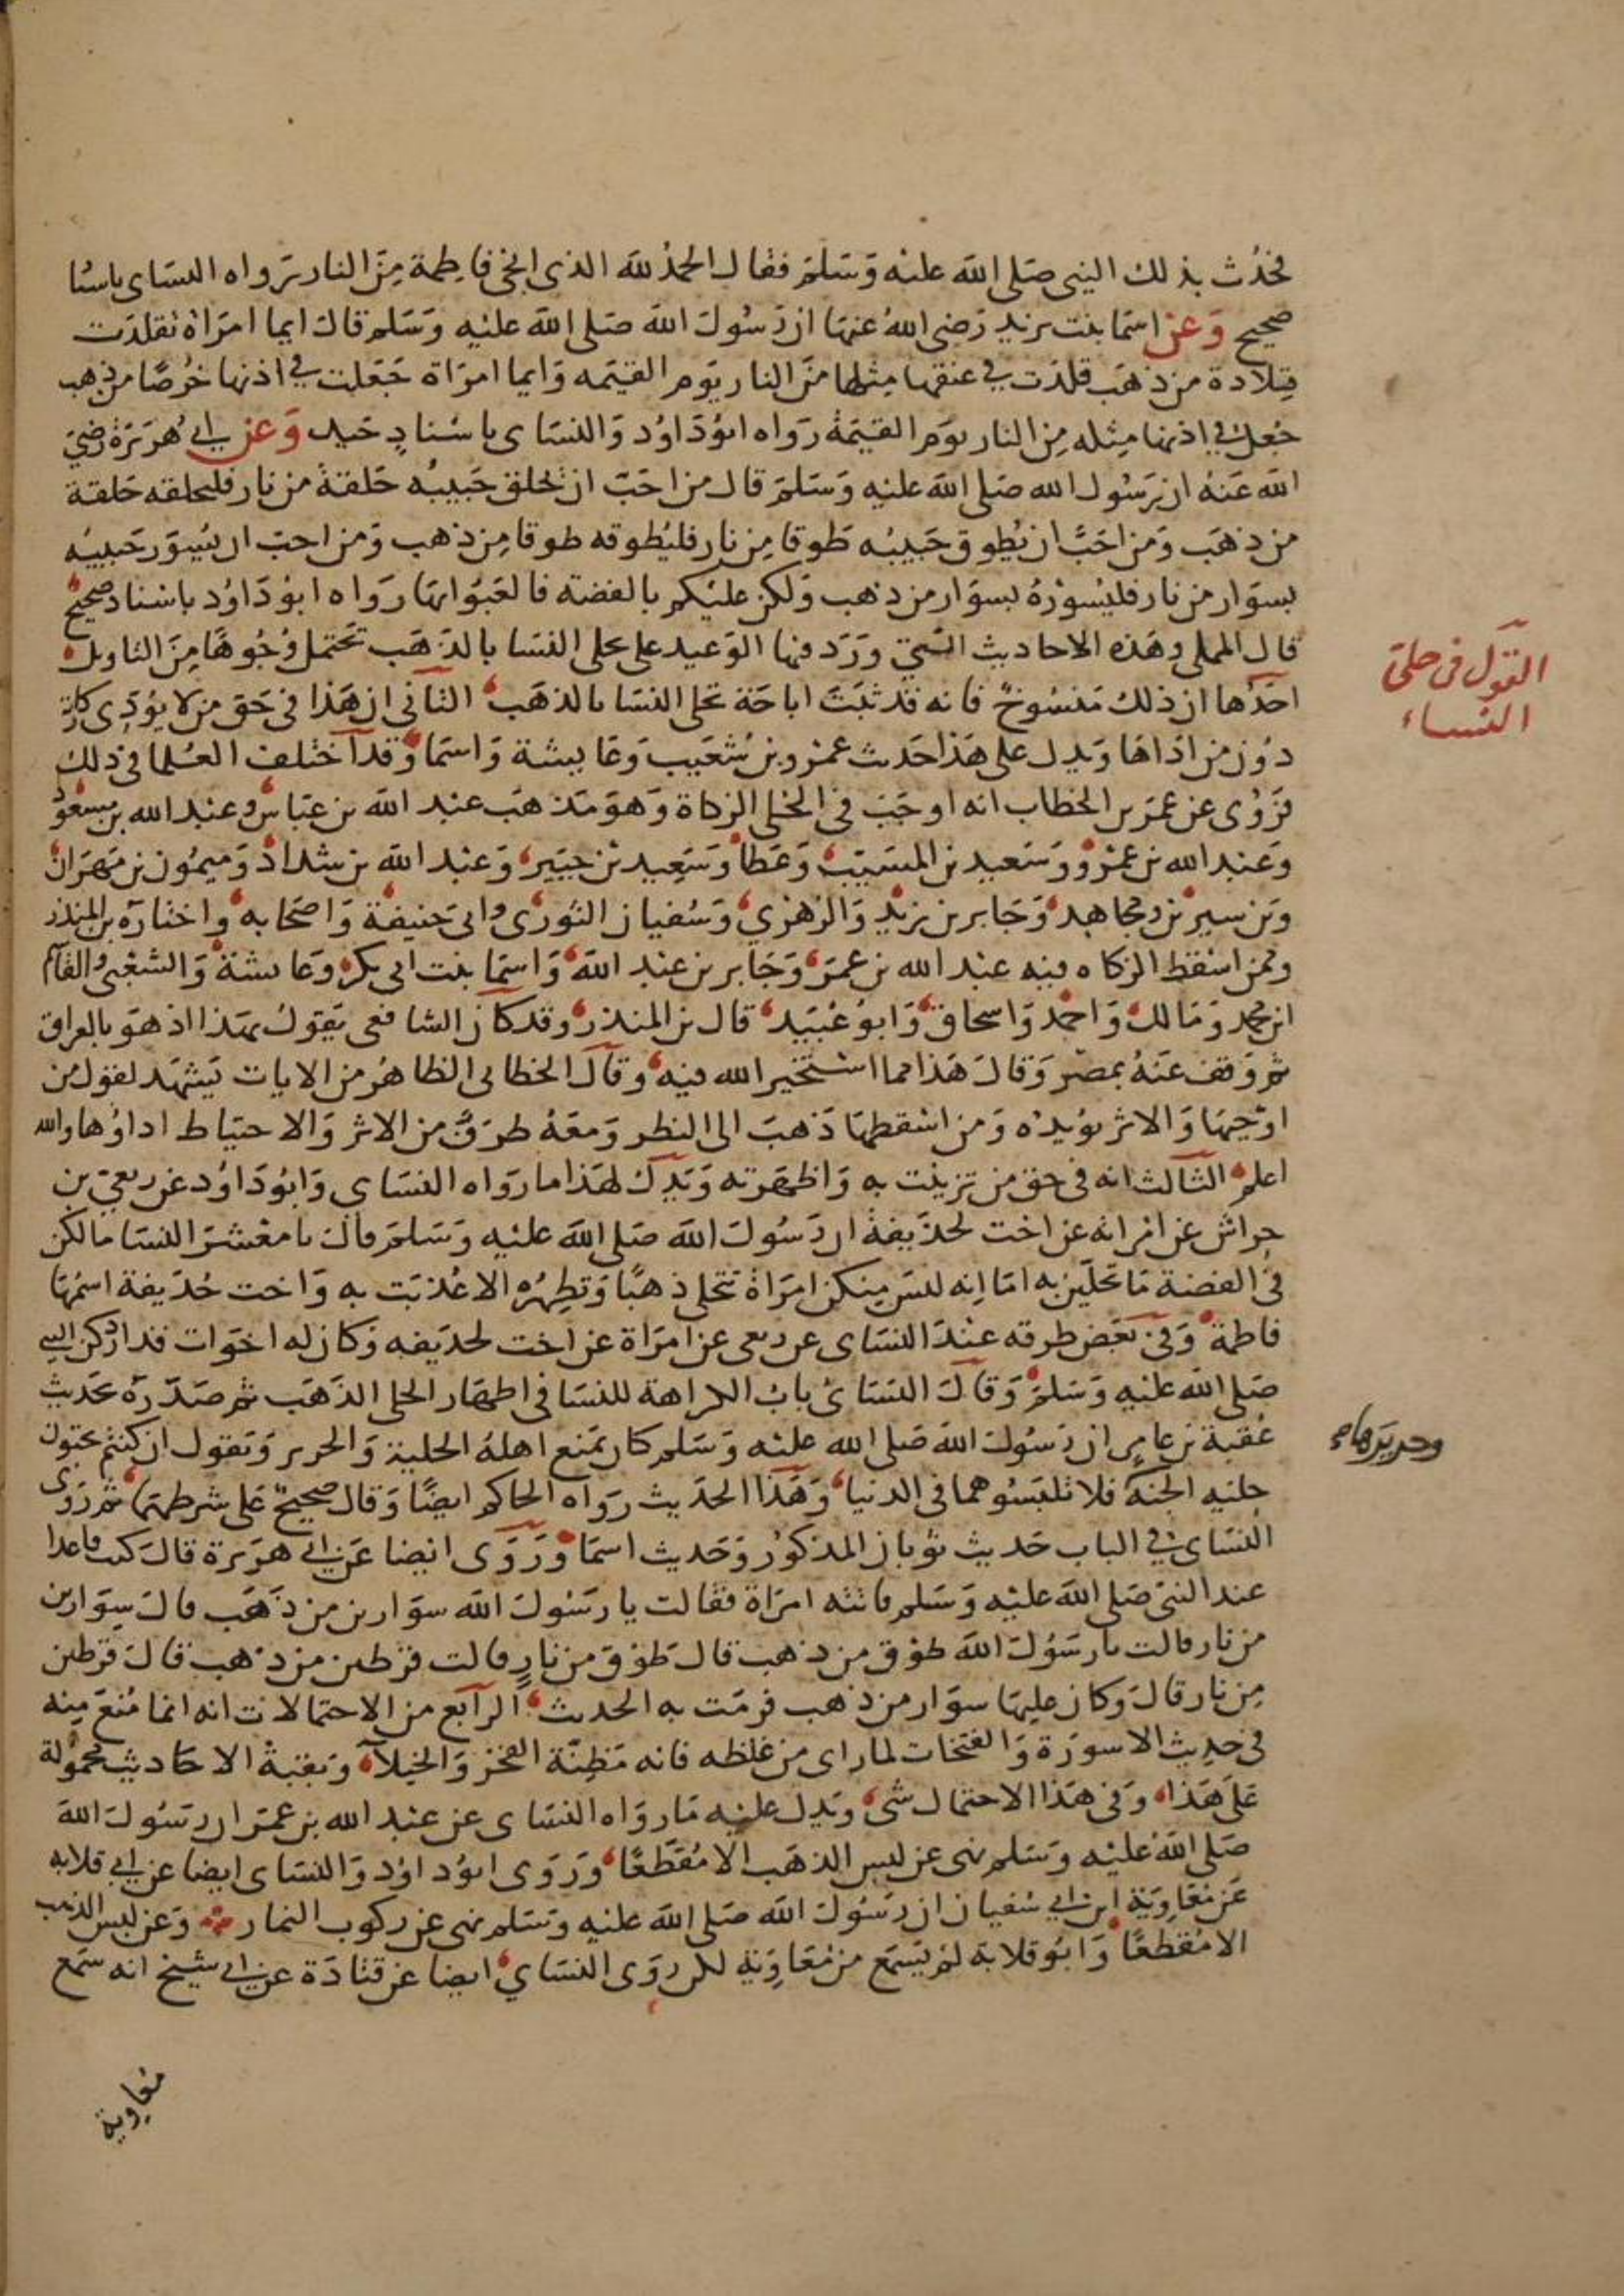 فحُدّث بذلك النبى صَلى الله عليْه وَسَلمَ فقال الحمدُ لله الذى انجى فاطمة مِنَ النار رَواه النسَاى باسنا
صحيح وَعن اسمَا بنت يزيد رَضى اللهُ عنهَا ان رَسُولَ الله صَلى الله عليْهِ وَسَلم قالَ ايما امرَاة تقلدَت
قِلادة من ذهَب قلدَت في عنقها مثلها منَ النار يَوم القيَمه وَايما امرَاة جَعَلت في اذنها خُرصًا من ذهب
جُعل في اذنها مِثله مِن النار يوَم القيَمَة رَواه ابوُدَاوُد وَالنسَاى باسْنادٍ جَيد وَعن ابي هُرَيرَة رَضيَ
الله عَنهُ ان رَسُول الله صَلى الله عليه وَسَلمَ قال من احَبّ ان يُحلق حَبيبُه حَلقةً من نار فليحلقه حَلقة
من ذهَب وَمَن احَبَّ ان يُطوِق حَبيبُه طَوقا مِن نار فليُطوقه طوقا مِن ذهب وَمن احبّ ان يُسِوَر حَبيبُه
بسوَار من نار فليُسوْرهُ بسوَار من ذهب وَلكن عليْكم بالفضة فالعَبُوا بهَا رَواه ابوُدَاوُد باسْناد صحيحْ
قال المملى وهَذه الاحاديث التي وَرَد فيها الوَعيد على تحلى النسَا بالذهَب تحتمل وُجُوهًا مِنَ التاويل
احَدُها ان ذلك مَنسُوخٌ فانه قد ثبَتَ اباحَة تحلى النسَا بالذهَب الثانى ان هَذا فى حَق من لا يُؤدى زكاته
دوُن من ادّاهَا وَيدل على هَذا حَديث عمرو بن شعَيب وَعَايشة وَاسمَا وَقد اختلف العُلما فى ذلك
فرَوُى عن عمَر بن الخطاب انه اوجَبَ فى الحُلى الزكاة وَهوَ مَذهَب عبْد الله بن عبَاس وعبْد الله بن مسعُود
وَعبْد الله بن عمرْو وَسَعيد بن المسَيّب وَعَطا وَسَعِيد بْن جبَير وَعبْد الله بن شداد وَميمُون بن مهرَان
وَبن سيرين وَمجاهِد وَجَابر بن زيْد وَالزهرْي وَسُفيان الثورى وابى حَنيفة وَاصحَابه واختارَه بن المنذر
وممن اسْقط الزكاه فيه عبْد الله بن عمَر وَجَابر بن عبْد الله وَاسمَا بنت ابى بكر وعَايشة وَالشعْبى وَالقاسم
ابن محمد وَمَالك وَاحمْد وَاسحاق وَابوُ عُبَيد قال بن المنذر وقد كان الشافعى يَقولُ بهَذا اذ هوَ بالعراق
ثم وَقف عَنهُ بمصْر وَقالَ هَذا مما استخير الله فيه وقالَ الخطابى الظاهرُ من الايات يَشهَد لقول من
اوْجبهَا وَالاثر يؤيدْه وَمن اسْقطهَا ذَهبَ الى النظر وَمعَهُ طرَفٌ من الاثر وَالاحتيَاط اداوُها والله
اعلم الثالث انه فى حق من تزينت به وَاظهَرته وَيَدل لهَذا ما رَواه النسَاى وَابوُدَاوُد عن ربعيّ بن
حِراش عن امرَاته عن اخت لحذَيفة ان رَسُولَ الله صَلى اللهَ عليْهِ وَسَلمَ قال يا معْشرَ النسَا ما لكن
فى الفضة مَا تحَلين به امَا اِنه ليسَ مِنكن امرَاة تتحلى ذهبًا وَتظهِرُه الا عُذبَت به وَاخت حُذَيفة اسمُها
فاطمة وَفى بعَض طرقه عنْدَ النسَاى عن ربعى عن امرَاة عن اخت لحذيفه وَكان له اخوَات قد ادركن النبى
صَلى الله عليْه وَسَلم وَقالَ النسَائ بابُ الكراهة للنسَا فى اظهَار الحلى الذهَب ثم صَدّرَه بحَديث
عُقبة بن عامِر ان رَسُولَ الله صَلى الله عليْه وَسَلم كان يمنع اهلهُ الحلية وَالحرير وَيقول ان كنتم تحبُون
حِليَه الجنة فلا تلبَسُوهما فى الدنيا وَهَذا الحدَيث رَواه الحَاكم ايضًا وَقال صَحيحٌ عَلى شرطهمَا ثم رَوَى
النسَاى في الباب حَديث ثوبان المذكوُر وَحَديث اسمَا وَرَوَى ايضا عَن ابي هرَيرة قالَ كنت قاعدا
عند النبىّ صَلى اللهَ عليْه وَسَلم فاتته امرَاة فقالت يا رسَوُل الله سوَارين من ذهَب قالَ سِوَارين
من نار قالت يا رسَوُلَ الله طوْق من ذهب قال طوْقَ من نارٍ قالت قرْطين من ذهب قالَ قرْطين
مِن نار قالَ وَكان عليهَا سوَار من ذهب فرمَت به الحديث الرابع من الاحتمالات انه انما مُنعَ مِنه
فى حدِيث الاسورَة وَالفتخات لما راى من غلظه فانه مَظِنّة الفخر وَالخيلاَء وَبقيّة الاحَاديث محموُلة
عَلى هَذا وَفى هَذا الاحتمال شىء وَيدل عليْه مَا روَاه النسَاى عن عبْد الله بن عمَر ان رسَوُلَ الله
صَلى اللهَ عليْه وَسَلم نهى عن لبس الذهَب الا مُقَطعًا وَرَوَى ابوُداوُد وَالنسَاى ايضا عن ابي قلابه
عَن مُعَاوِيَة ابن ابي سُفيان ان رسَوُلَ الله صَلى الله عليْه وَسَلم نهى عن ركوب النمار وَعن لبس الذهب
الا مُقطعًا وَابوُ قلابة لم يَسمَع من مُعَاوِيَة لكن روَى النسَاي ايضا عن قتادَة عن ابي شيْخ انه سَمع
معاوية
القول فى حلىّ
النساء